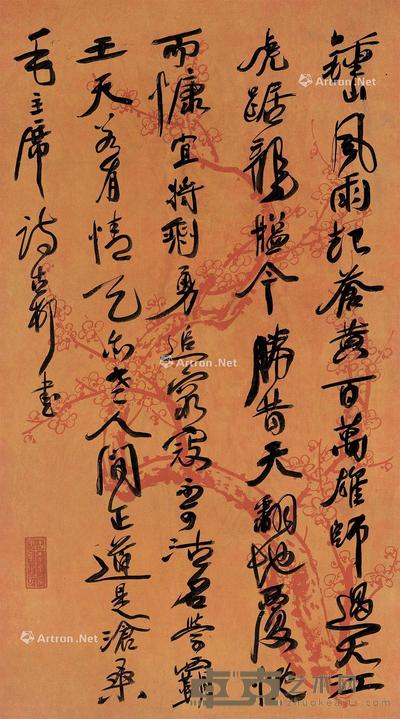 鍾山風雨起蒼黃百萬雄師過大江
虎踞龍盤今勝昔天翻地覆慨
而慷宜將剩勇追窮寇不可沽名學霸
王天若有情天亦老人間正道是滄桑
毛主席詩 書
Artron.Net
Artron.Net
Artron.Net
Artron.Net
Artron.Net
卓克艺术网